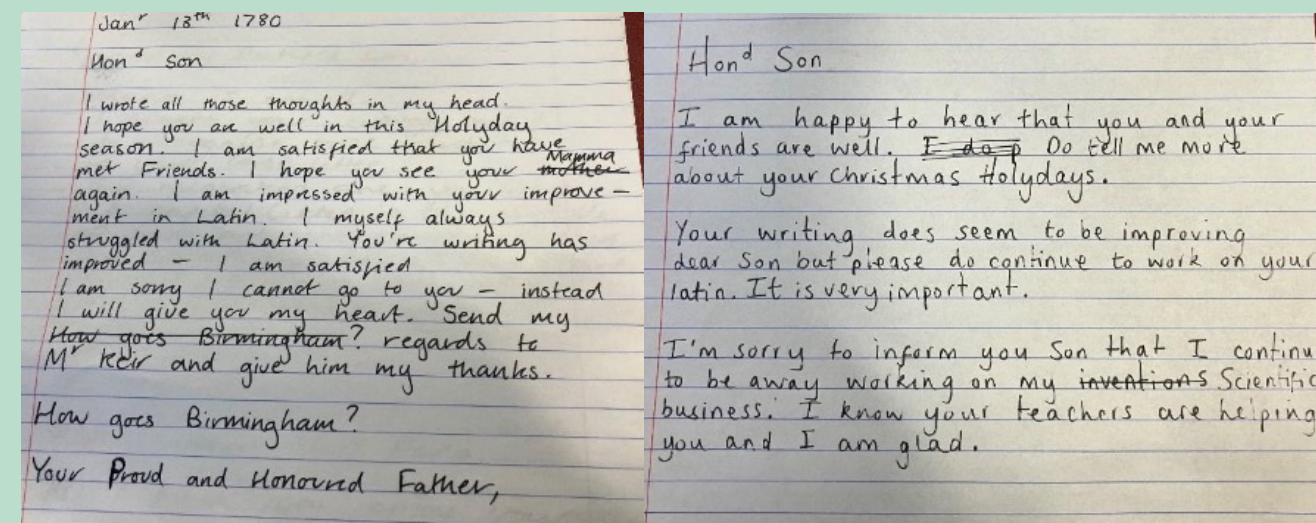 Janʳ 13ᵗʰ 1780
Honᵈ Son
I wrote all those thoughts in my head.
I hope you are well in this Holyday
season. I am satisfied that you have
met Friends. I hope you see your ~~mother~~ Mamma
again. I am impressed with your improve –
ment in Latin. I myself always
struggled with Latin. You're writing has
improved – I am satisfied
I am sorry I cannot go to you – instead
I will give you my heart. Send my
~~How goes Birmingham?~~ regards to
Mʳ Keir and give him my thanks.
How goes Birmingham?
Your Proud and Honoured Father,
Honᵈ Son
I am happy to hear that you and your
friends are well. ~~I do p~~ Do tell me more
about your Christmas Holydays.
Your writing does seem to be improving
dear Son but please do continue to work on your
latin. It is very important.
I'm sorry to inform you Son that I continu
to be away working on my ~~inventions~~ Scientific
business. I know your teachers are helping
you and I am glad.